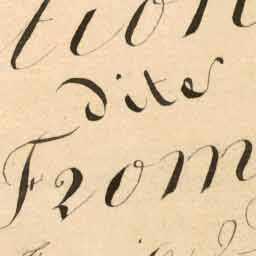 tion
dite
From